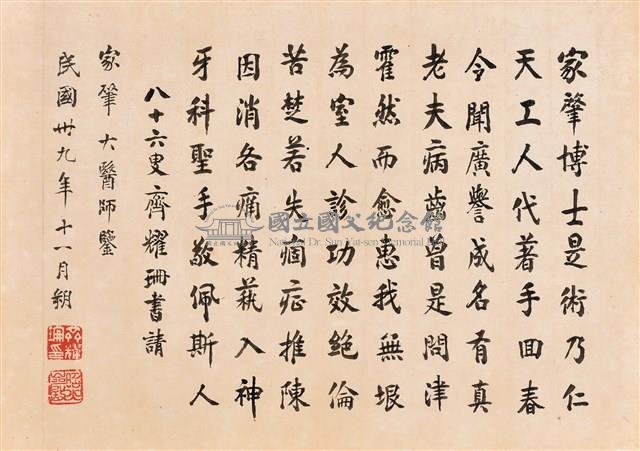 家肇博士是術乃仁
天工人代著手回春
令聞廣譽成名有真
老夫病齒曾是問津
霍然而愈惠我無垠
為室人診功效絕倫
苦楚若失痼症推陳
因消各痛精萟入神
牙科聖手敬佩斯人
八十六叟齊耀珊書請
家肇大醫師鑒
民國卅九年十一月朔
國立國父紀念館
National Dr. Sun Yat-sen Memorial Hall